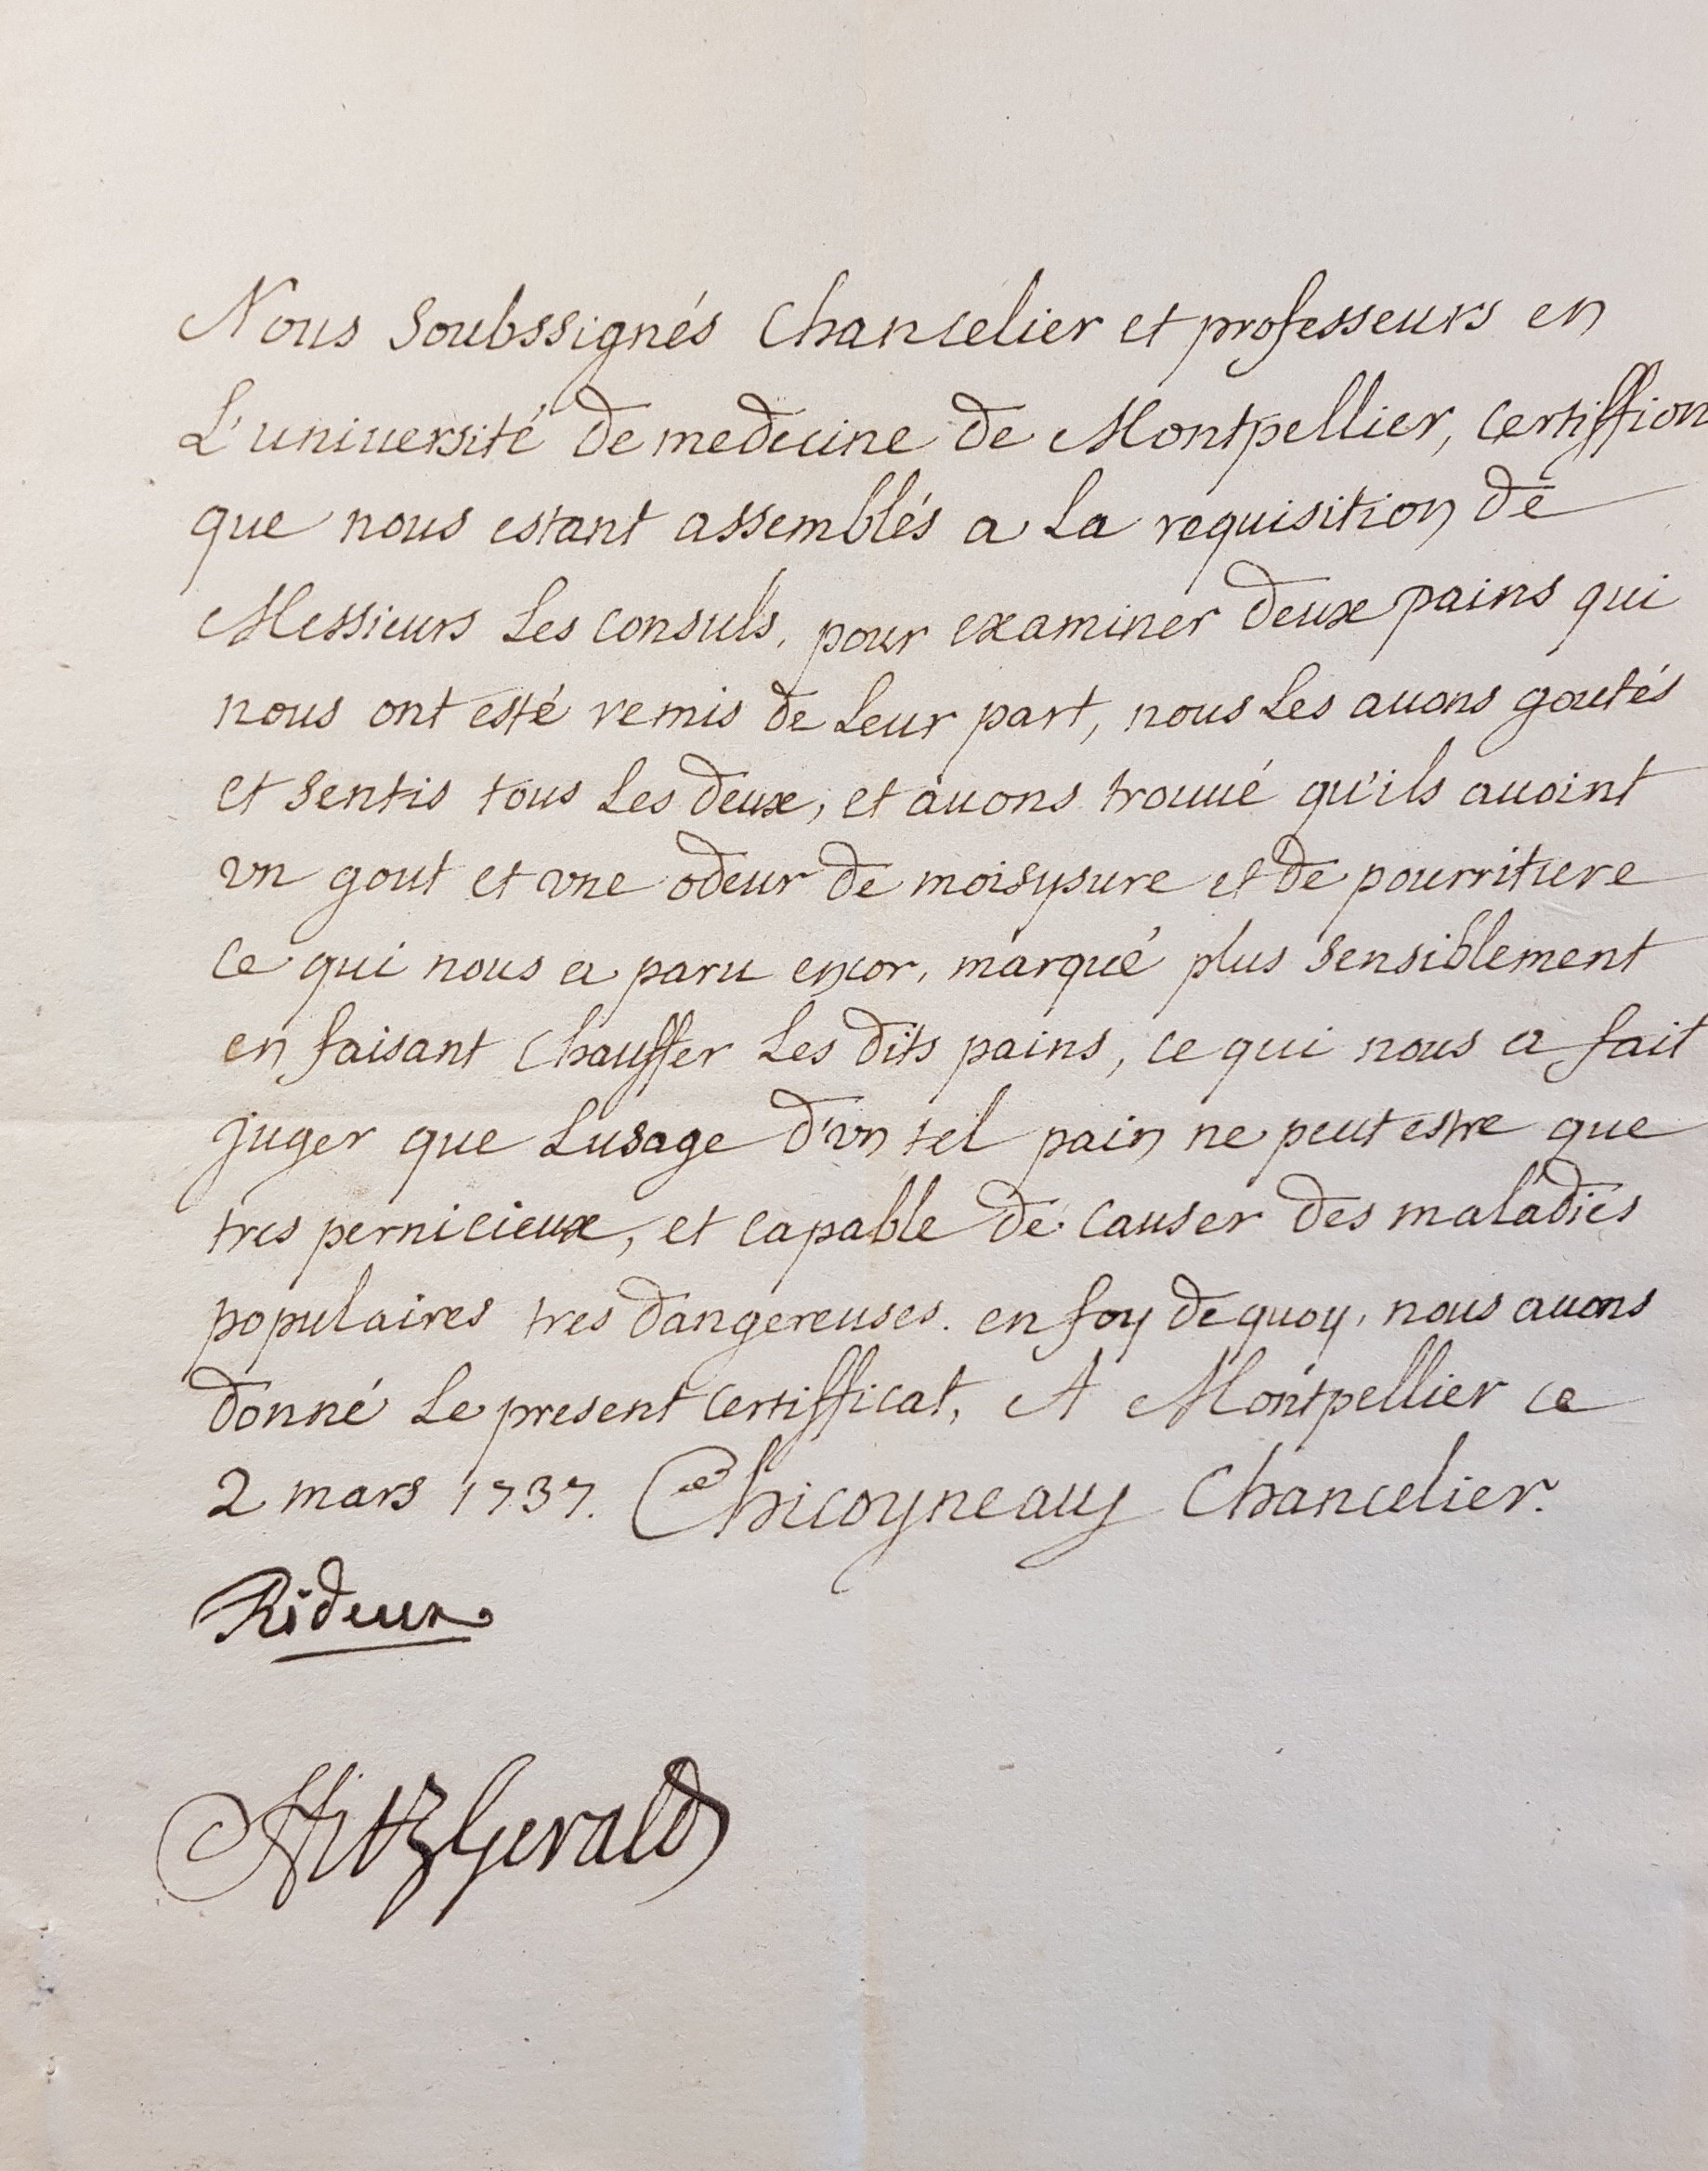 Nous soubssignés Chancelier et professeurs en
L'uniuersité de medecine de Montpellier, certiffion
que nous estant assemblés a la requisition de
Messieurs les consuls, pour examiner deux pains qui
nous ont esté remis de leur part, nous les auons goutés
et sentis tous les deux, et auons trouué qu'ils auoint
vn gout et vne odeur de moisysure et de pourriture
ce qui nous a paru encor, marqué plus sensiblement
en faisant chauffer les dits pains, ce qui nous a fait
juger que lusage d'vn tel pain ne peut estre que
tres pernicieux, et capable de causer des maladies
populaires tres dangereuses. en foy de quoy, nous auons
donné le present certifficat, A Montpellier ce
2 mars 1737. Chicoyneau Chancelier.
Rideux
FitzGerald